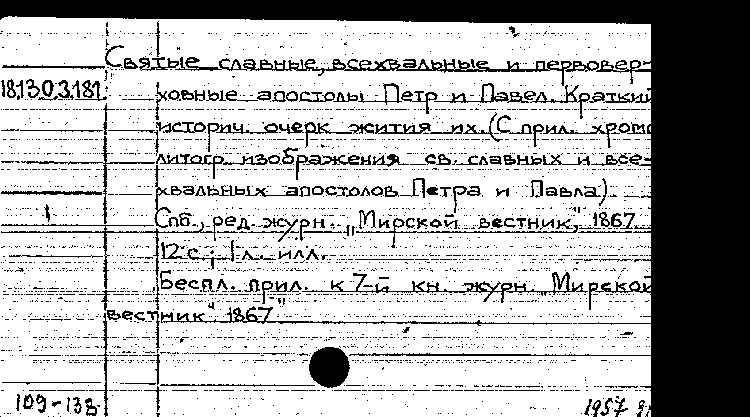 Святые славные, всехвальные и первовер-
18.130.3.181 ховные апостолы Петр и Павел. Краткий
историч. очерк жития их. (С прил. хромо
литогр. изображения св. славных и все-
хвальных апостолов Петра и Павла)
Спб., ред. журн. „Мирской вестник", 1867
12 с.; 1 л. илл.
Беспл. прил. к 7-й кн. журн. „Мирской
вестник" 1867
109-138 1957